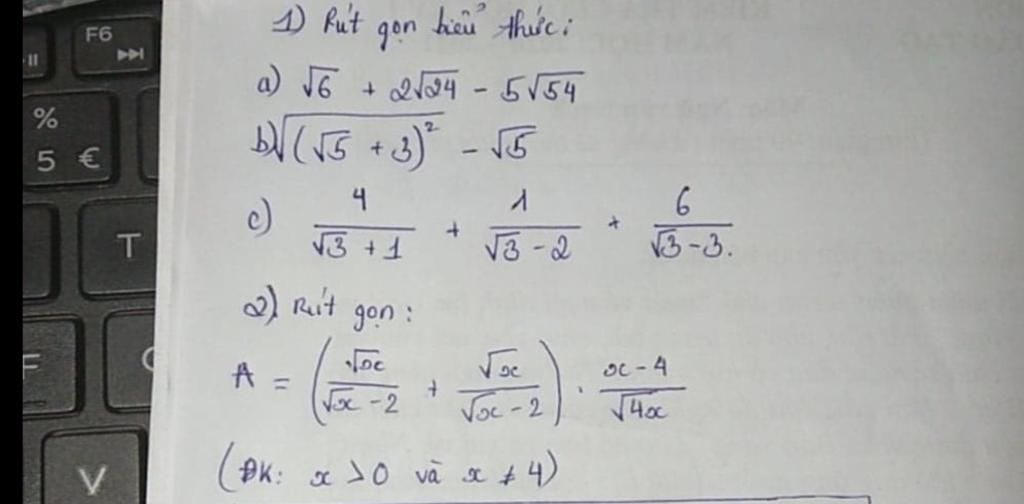 F6
%
5 €
T
F
V
1) Rút gọn biểu thức:
a) √6 + 2√24 - 5√54
b) √((√5 + 3)²) - √5
c) 4/(√3 + 1) + 1/(√3 - 2) + 6/(√3 - 3).
2) Rút gọn:
A = (√x/(√x - 2) + √x/(√x - 2)) . (x - 4)/√4x
(ĐK: x > 0 và x ≠ 4)